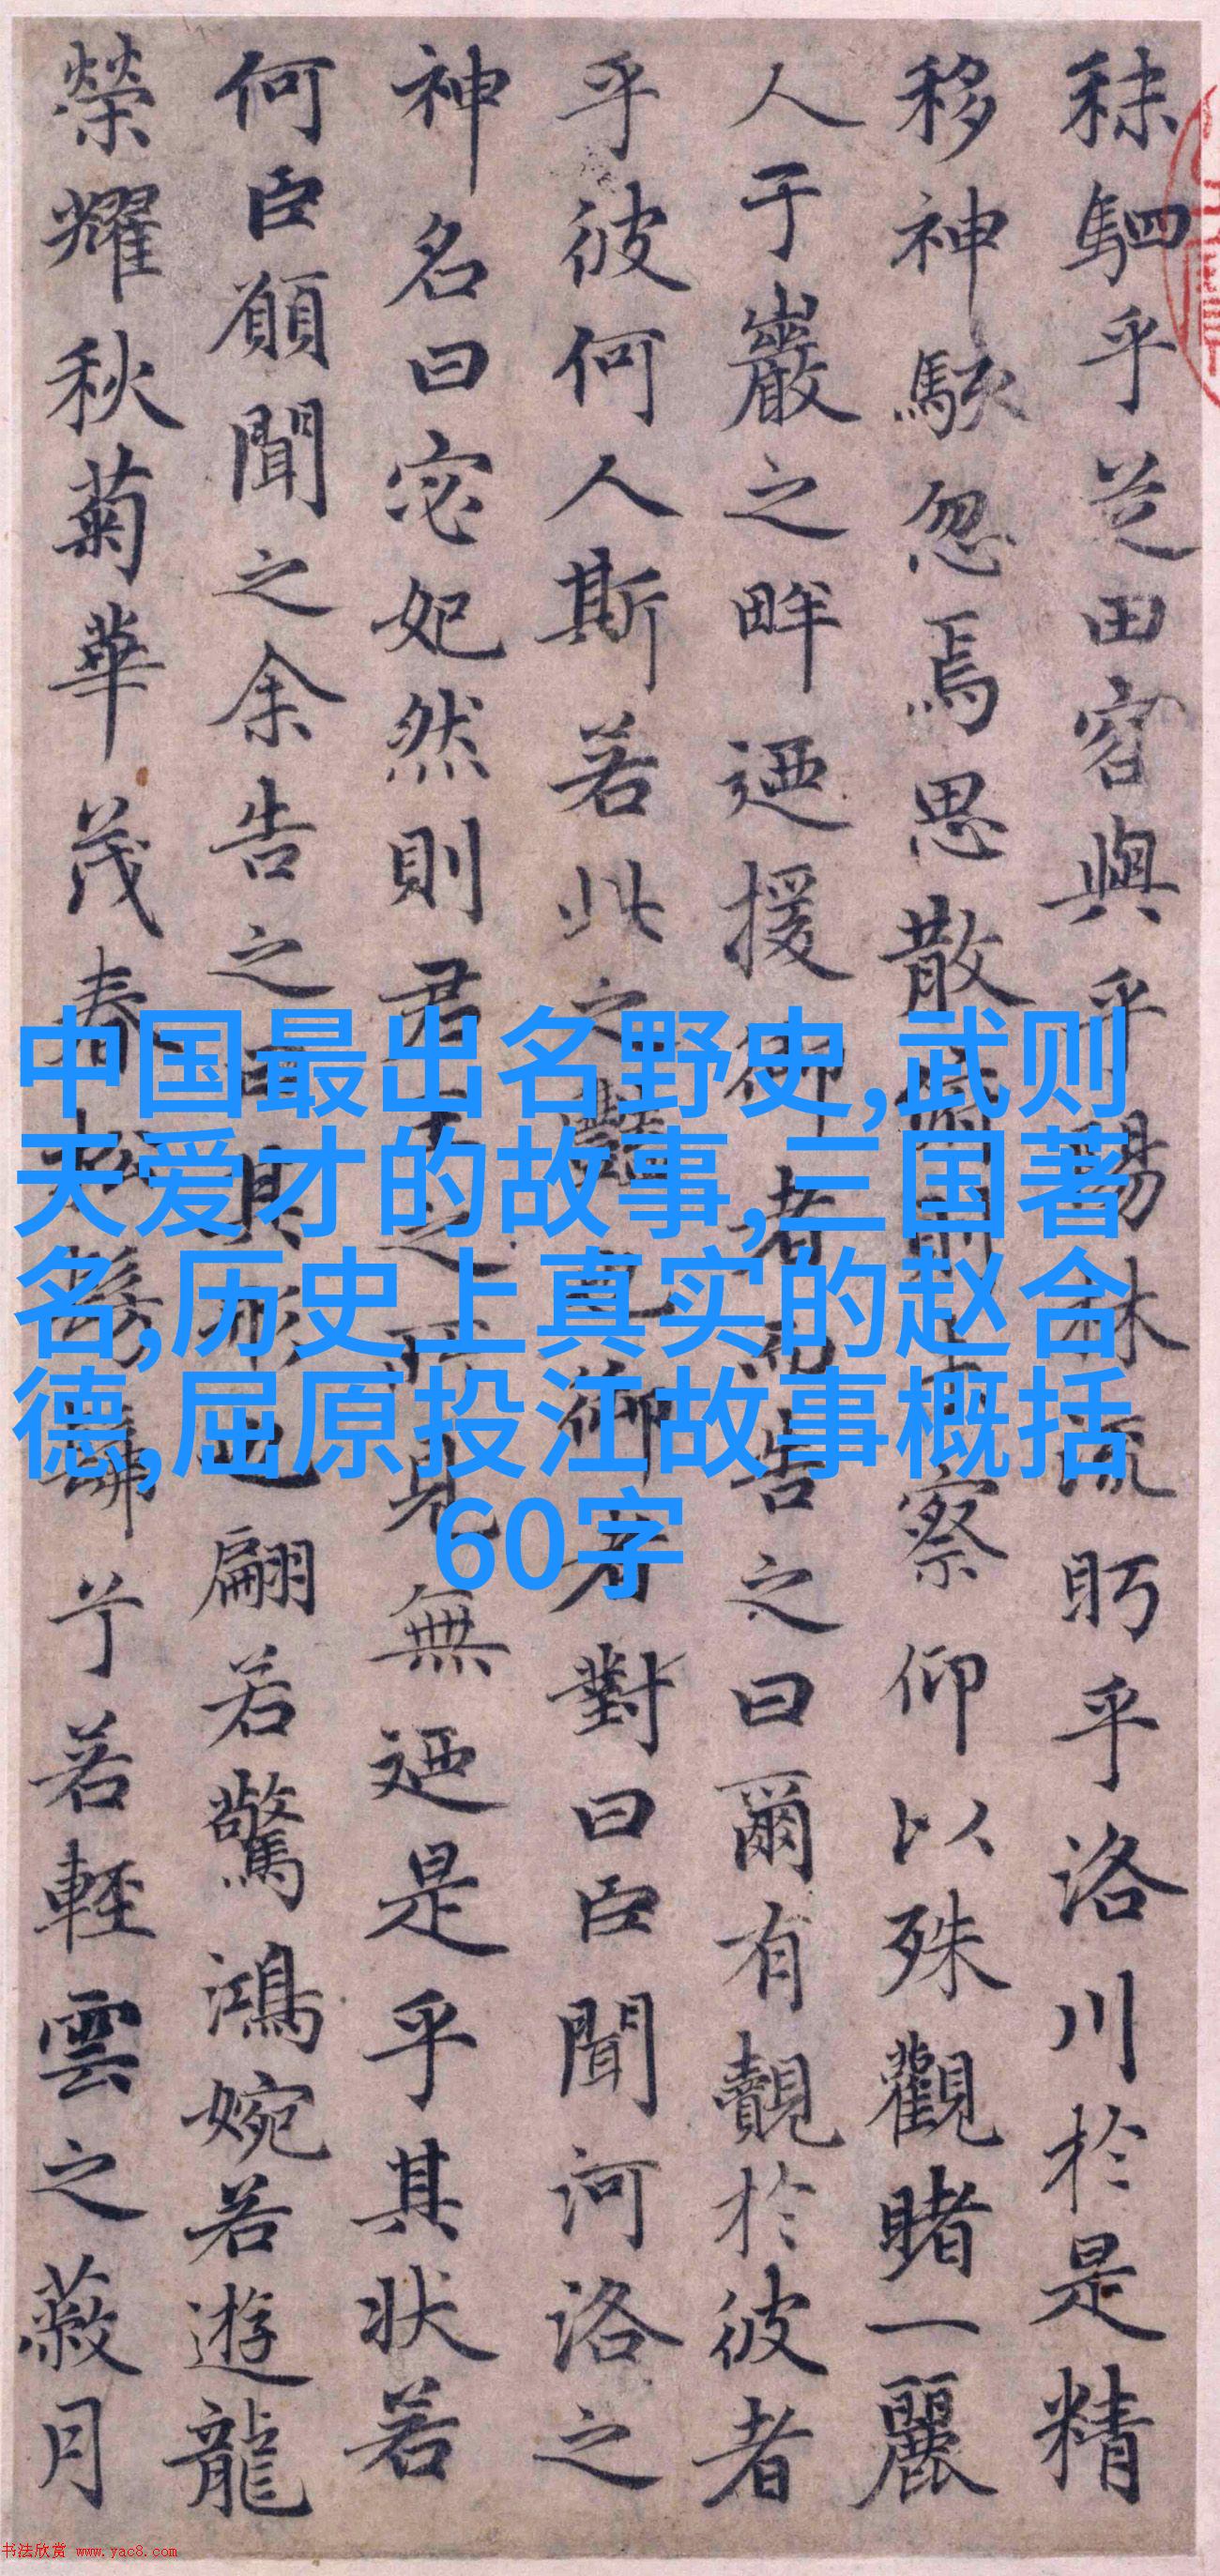 秣駟乎芝田容與乎陽林流眄乎洛川於是精
移神駭忽焉思散則未察仰以殊觀睹一麗
人于巖之畔迺援御者而告之曰爾有覿於彼者
乎彼何人斯若此之豔也御者對曰臣聞河洛之
神名曰宓妃然則君王之所見無迺是乎其狀若
何臣願聞之余告之曰其形也翩若驚鴻婉若遊龍
榮耀秋菊華茂春松髣髴兮若輕雲之蔽月
中国最出名野史,武则
天爱才的故事,三国著
名,历史上真实的赵合
德,屈原投江故事概括
60字
书法欣赏 www.yac8.com